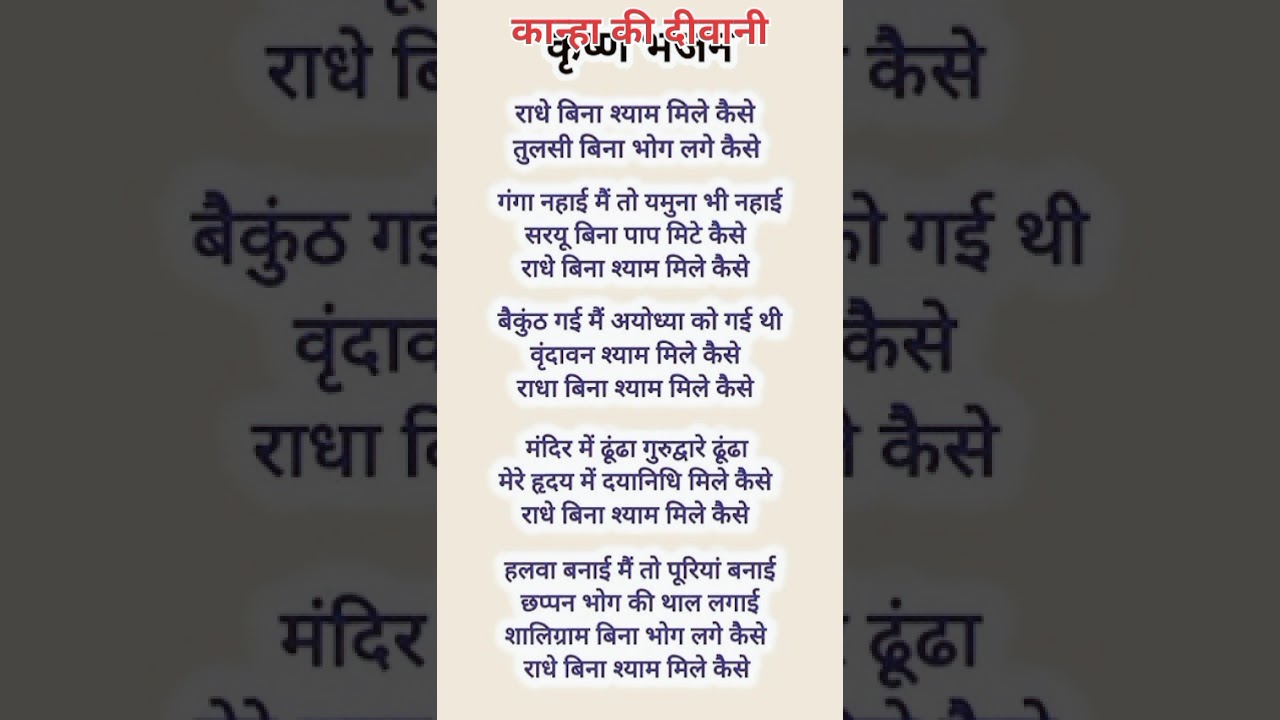 कान्हा की दीवानी
कृष्ण भजन
राधे बिना श्याम मिले कैसे
तुलसी बिना भोग लगे कैसे
गंगा नहाई मैं तो यमुना भी नहाई
सरयू बिना पाप मिटे कैसे
राधे बिना श्याम मिले कैसे
बैकुंठ गई मैं अयोध्या को गई थी
वृंदावन श्याम मिले कैसे
राधा बिना श्याम मिले कैसे
मंदिर में ढूंढा गुरुद्वारे ढूंढा
मेरे हृदय में दयानिधि मिले कैसे
राधे बिना श्याम मिले कैसे
हलवा बनाई मैं तो पूरियां बनाई
छप्पन भोग की थाल लगाई
शालिग्राम बिना भोग लगे कैसे
राधे बिना श्याम मिले कैसे